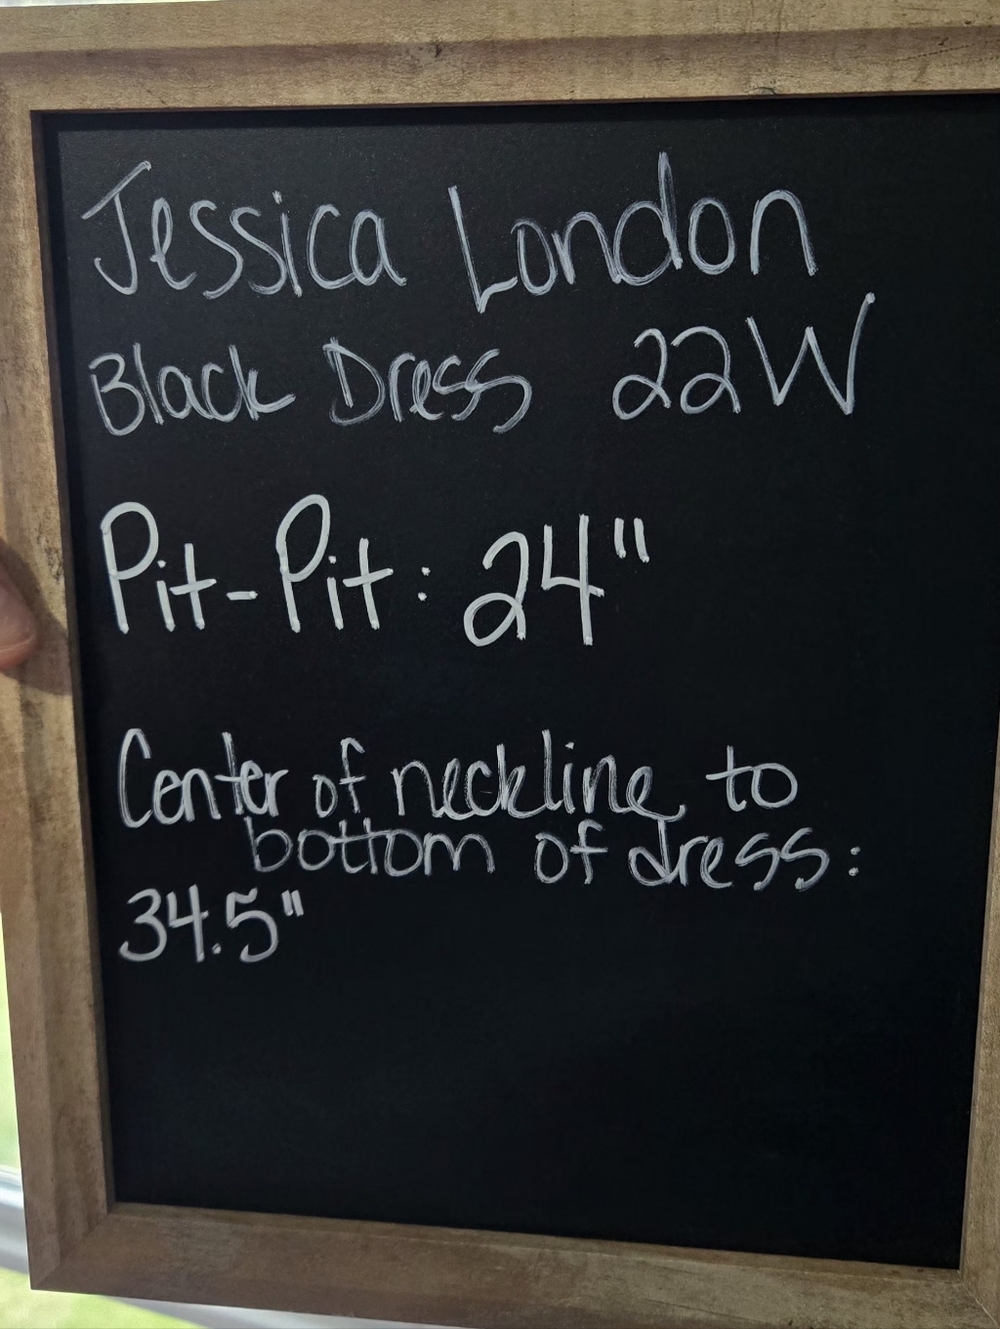 Jessica London
Black Dress 22W
Pit-Pit: 24"
Center of neckline to
bottom of dress:
34.5"